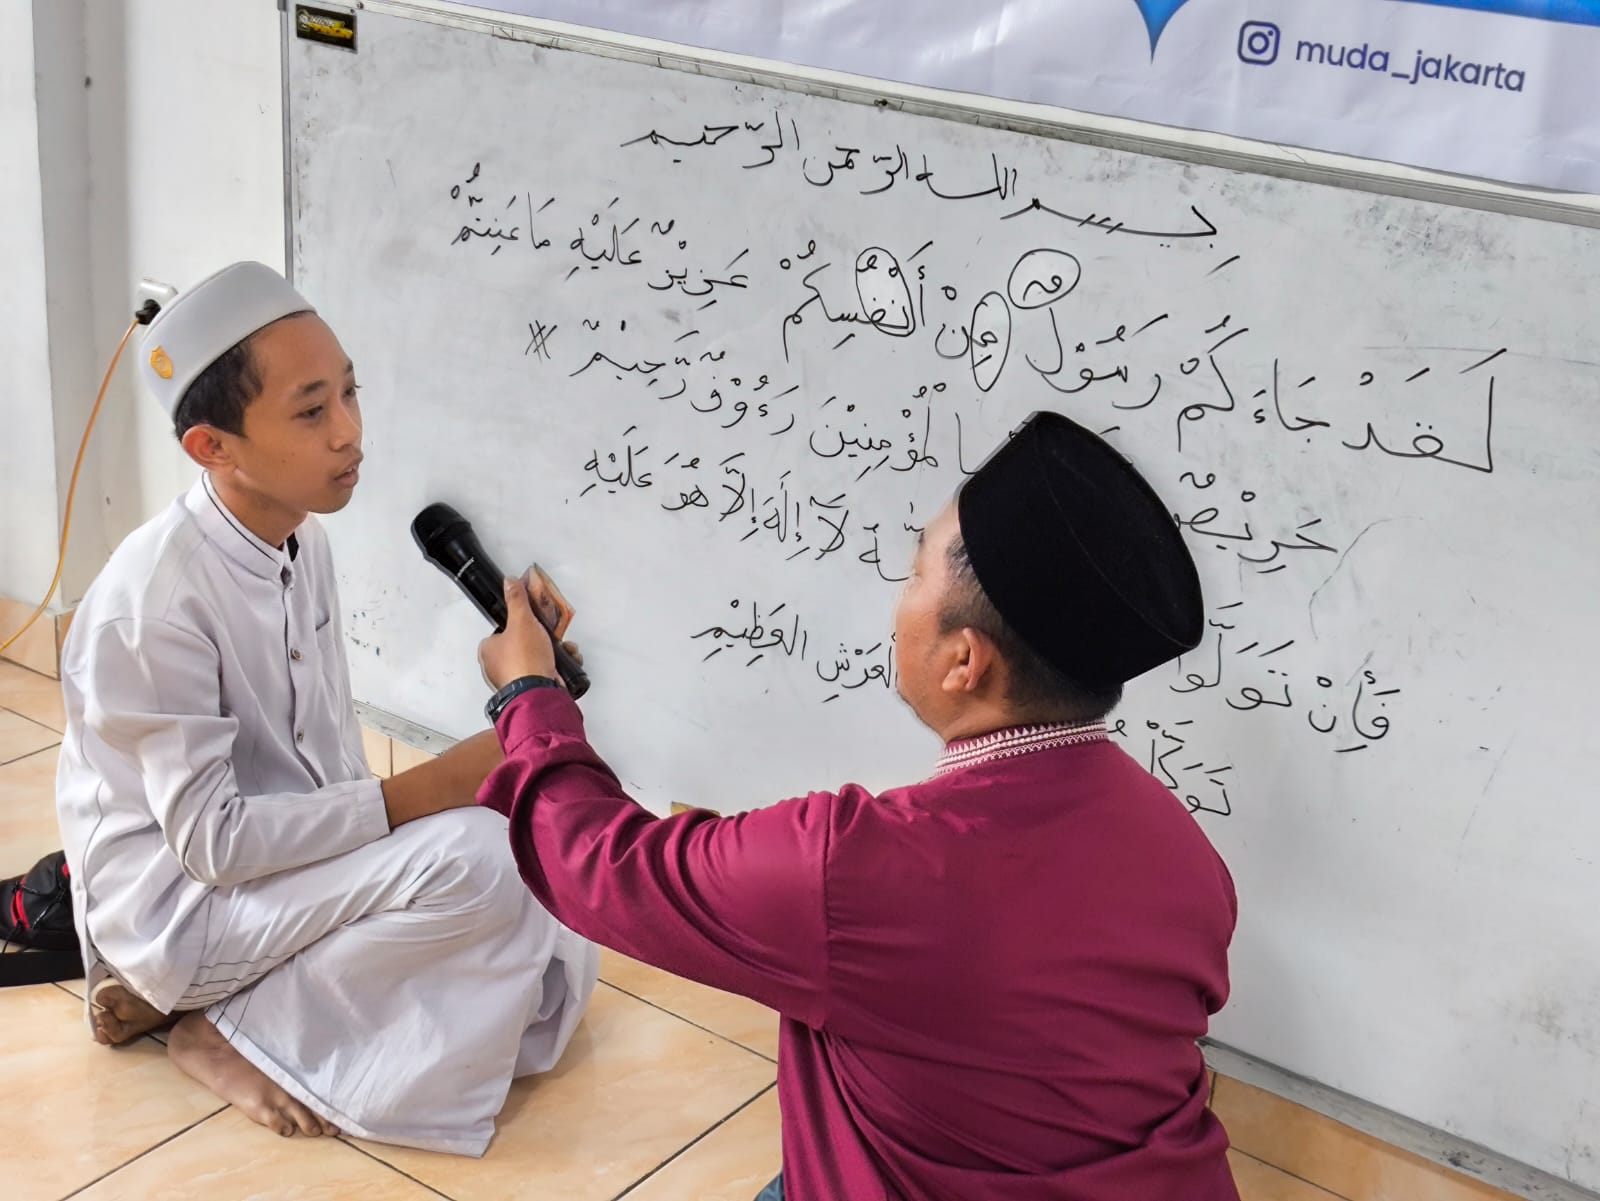 muda_jakarta
بسم الله الرّحمن الرّحيم
لَقَدْ جَاءَكُمْ رَسُوْلٌ مِنْ أَنْفُسِكُمْ عَزِيْزٌ عَلَيْهِ مَا عَنِتُّمْ
حَرِيْصٌ الْمُؤْمِنِيْنَ رَءُوْفٌ رَّحِيْمٌ #
فَإِنْ تَوَلَّوْا لَآ إِلَهَ إِلَّا هُوَ عَلَيْهِ
تَوَكَّلْ الْعَرْشِ الْعَظِيْمِ